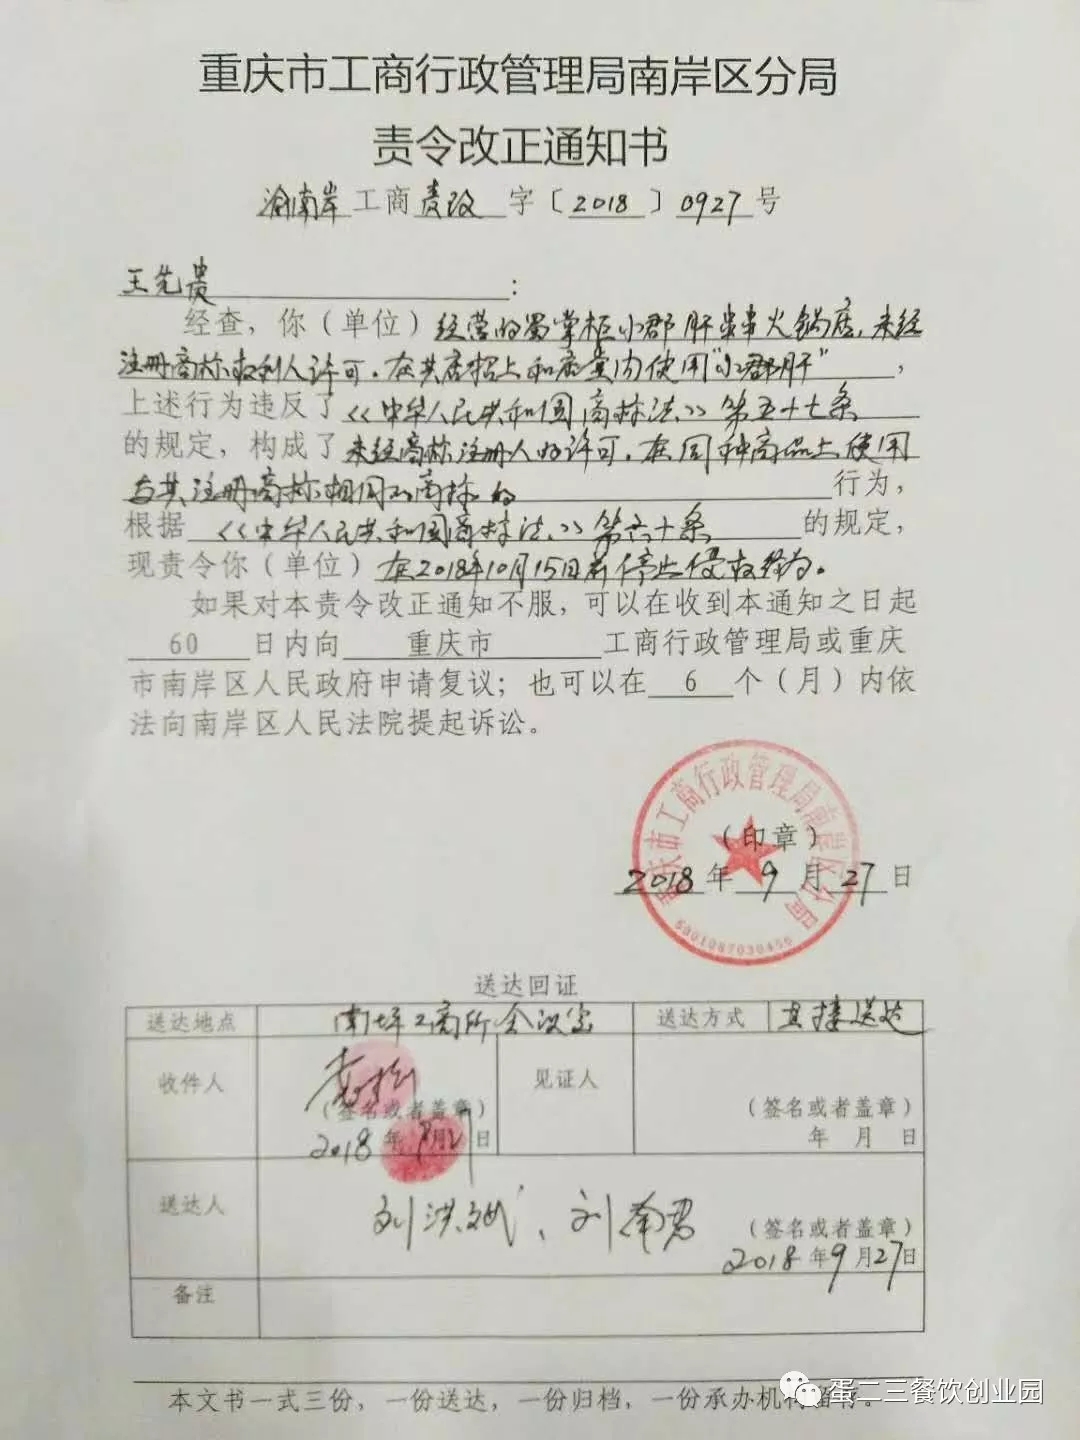 重庆市工商行政管理局南岸区分局
责令改正通知书
渝南岸工商责改字〔2018〕0927号
王先贵：
经查，你（单位）经营的蜀掌柜小郡肝串串火锅店，未经
注册商标权利人许可，在其店招上和店堂内使用“小郡肝”，
上述行为违反了《中华人民共和国商标法》第五十七条
的规定，构成了未经商标注册人的许可，在同种商品上使用
与其注册商标相同的商标的行为，
根据《中华人民共和国商标法》第六十条的规定，
现责令你（单位）在2018年10月15日前停止侵权行为。
如果对本责令改正通知不服，可以在收到本通知之日起
60日内向重庆市工商行政管理局或重庆
市南岸区人民政府申请复议；也可以在6个（月）内依
法向南岸区人民法院提起诉讼。
重庆市工商行政管理局南岸区分局
（印章）
2018年9月27日
送达回证
送达地点 南坪工商所会议室 送达方式 直接送达
收件人 见证人
（签名或者盖章） （签名或者盖章）
2018年9月日 年 月 日
送达人 刘洪斌、刘南君
（签名或者盖章）
2018年9月27日
备注
本文书一式三份，一份送达，一份归档，一份承办机构留存。
蛋二三餐饮创业园